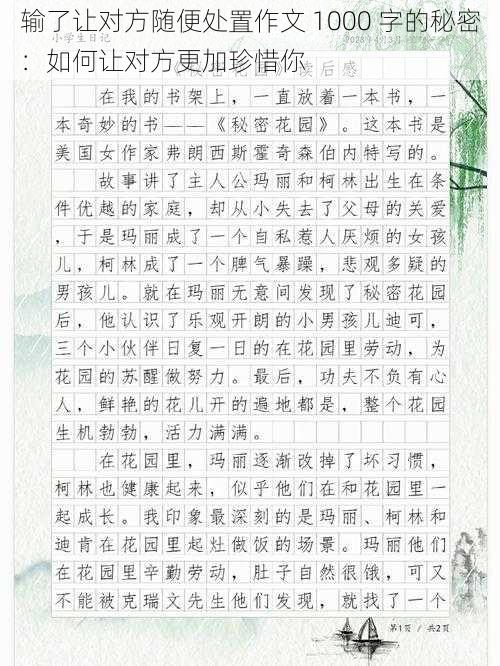 输了让对方随便处置作文 1000 字的秘密
：如何让对方更加珍惜你
小学生日记
读后感
在我的书架上，一直放着一本书，一
本奇妙的书——《秘密花园》。这本书是
美国女作家弗朗西斯霍奇森伯内特写的。
故事讲了主人公玛丽和柯林出生在条
件优越的家庭，却从小失去了父母的关爱
，于是玛丽成了一个自私惹人厌烦的女孩
儿，柯林成了一个脾气暴躁，悲观多疑的
男孩儿。就在玛丽无意间发现了秘密花园
后，他认识了乐观开朗的小男孩儿迪可，
三个小伙伴日复一日的在花园里劳动，为
花园的苏醒做努力。最后，功夫不负有心
人，鲜艳的花儿开的遍地都是，整个花园
生机勃勃，活力满满。
在花园里，玛丽逐渐改掉了坏习惯，
柯林也健康起来，似乎他们在和花园里一
起成长。我印象最深刻的是玛丽、柯林和
迪肯在花园里起灶做饭的场景。玛丽他们
在花园里辛勤劳动，肚子自然很饿，可又
不能被克瑞文先生他们发现，就找了一个
第1页 / 共2页